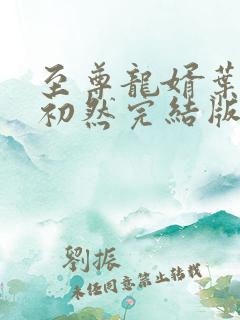 至尊龍婿葉
初然完結版
劉振
未任同意禁止轉載